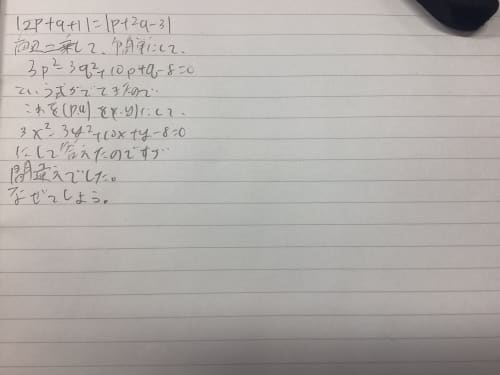 |2p+q+1|=|p+2q-3|
両辺二乗して、簡単にして、
3p²-3q²+10p+q-8=0
という式がでてきたので
これを(p,q)を(x,y)にして、
3x²-3y²+10x+y-8=0
にして答えたのですが
間違えでした。
なぜでしょう。